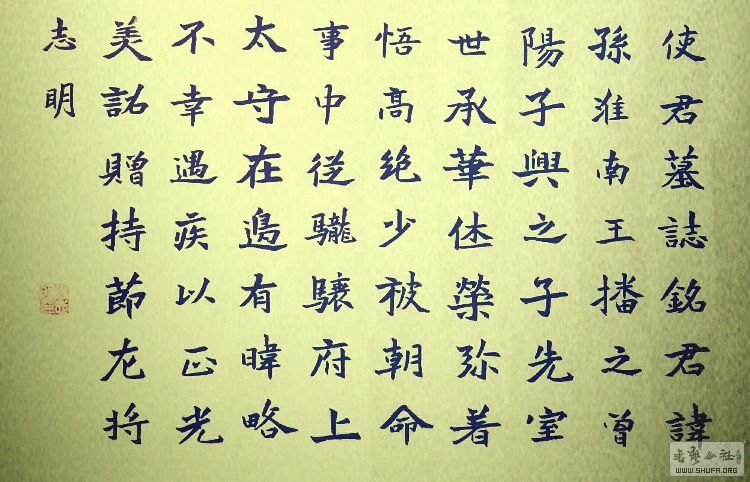 使君墓誌銘君諱
孫淮南王播之曾
陽子興之子先室
世承華休榮弥著
悟高绝少被朝命
事中従䮾驤府上
太守在邊有暐略
不幸遇疾以正光
美詔贈持節左将
志明
WWW.SHUFA.ORG